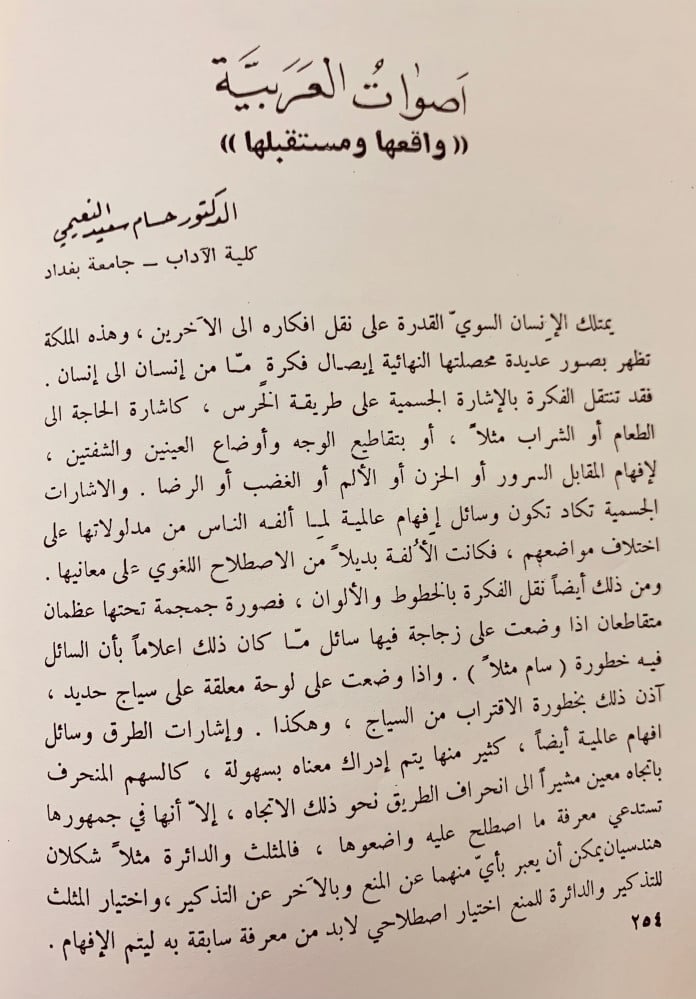 أصوات العربية
((واقعها ومستقبلها))
الدكتور حسام سعيد النعيمي
كلية الآداب ــ جامعة بغداد
يمتلك الإنسان السويّ القدرة على نقل افكاره الى الآخرين ، وهذه الملكة
تظهر بصور عديدة محصلتها النهائية إيصال فكرةٍ مّا من إنسان الى إنسان .
فقد تنتقل الفكرة بالإشارة الجسمية على طريقة الخُرس ، كاشارة الحاجة الى
الطعام أو الشراب مثلاً ، أو بتقاطيع الوجه وأوضاع العينين والشفتين ،
لإفهام المقابل السرور أو الحزن أو الألم أو الغضب أو الرضا . والاشارات
الجسمية تكاد تكون وسائل إفهام عالمية لِما ألفه الناس من مدلولاتها على
اختلاف مواضعهم ، فكانت الأُلفة بديلاً من الاصطلاح اللغوي على معانيها .
ومن ذلك أيضاً نقل الفكرة بالخطوط والألوان ، فصورة جمجمة تحتها عظمان
متقاطعان اذا وضعت على زجاجة فيها سائل مّا كان ذلك اعلاماً بأن السائل
فيه خطورة ( سام مثلاً ) . واذا وضعت على لوحة معلقة على سياج حديد ،
آذن ذلك بخطورة الاقتراب من السياج ، وهكذا . وإشارات الطرق وسائل
افهام عالمية أيضاً ، كثير منها يتم إدراك معناه بسهولة ، كالسهم المنحرف
باتجاه معين مشيراً الى انحراف الطريق نحو ذلك الاتجاه ، إلاّ أنها في جمهورها
تستدعي معرفة ما اصطلح عليه واضعوها ، فالمثلث والدائرة مثلاً شكلان
هندسيان يمكن أن يعبر بأيّ منهما عن المنع وبالآخر عن التذكير ،واختيار المثلث
للتذكير والدائرة للمنع اختيار اصطلاحي لابد من معرفة سابقة به ليتم الإفهام .
٢٥٤